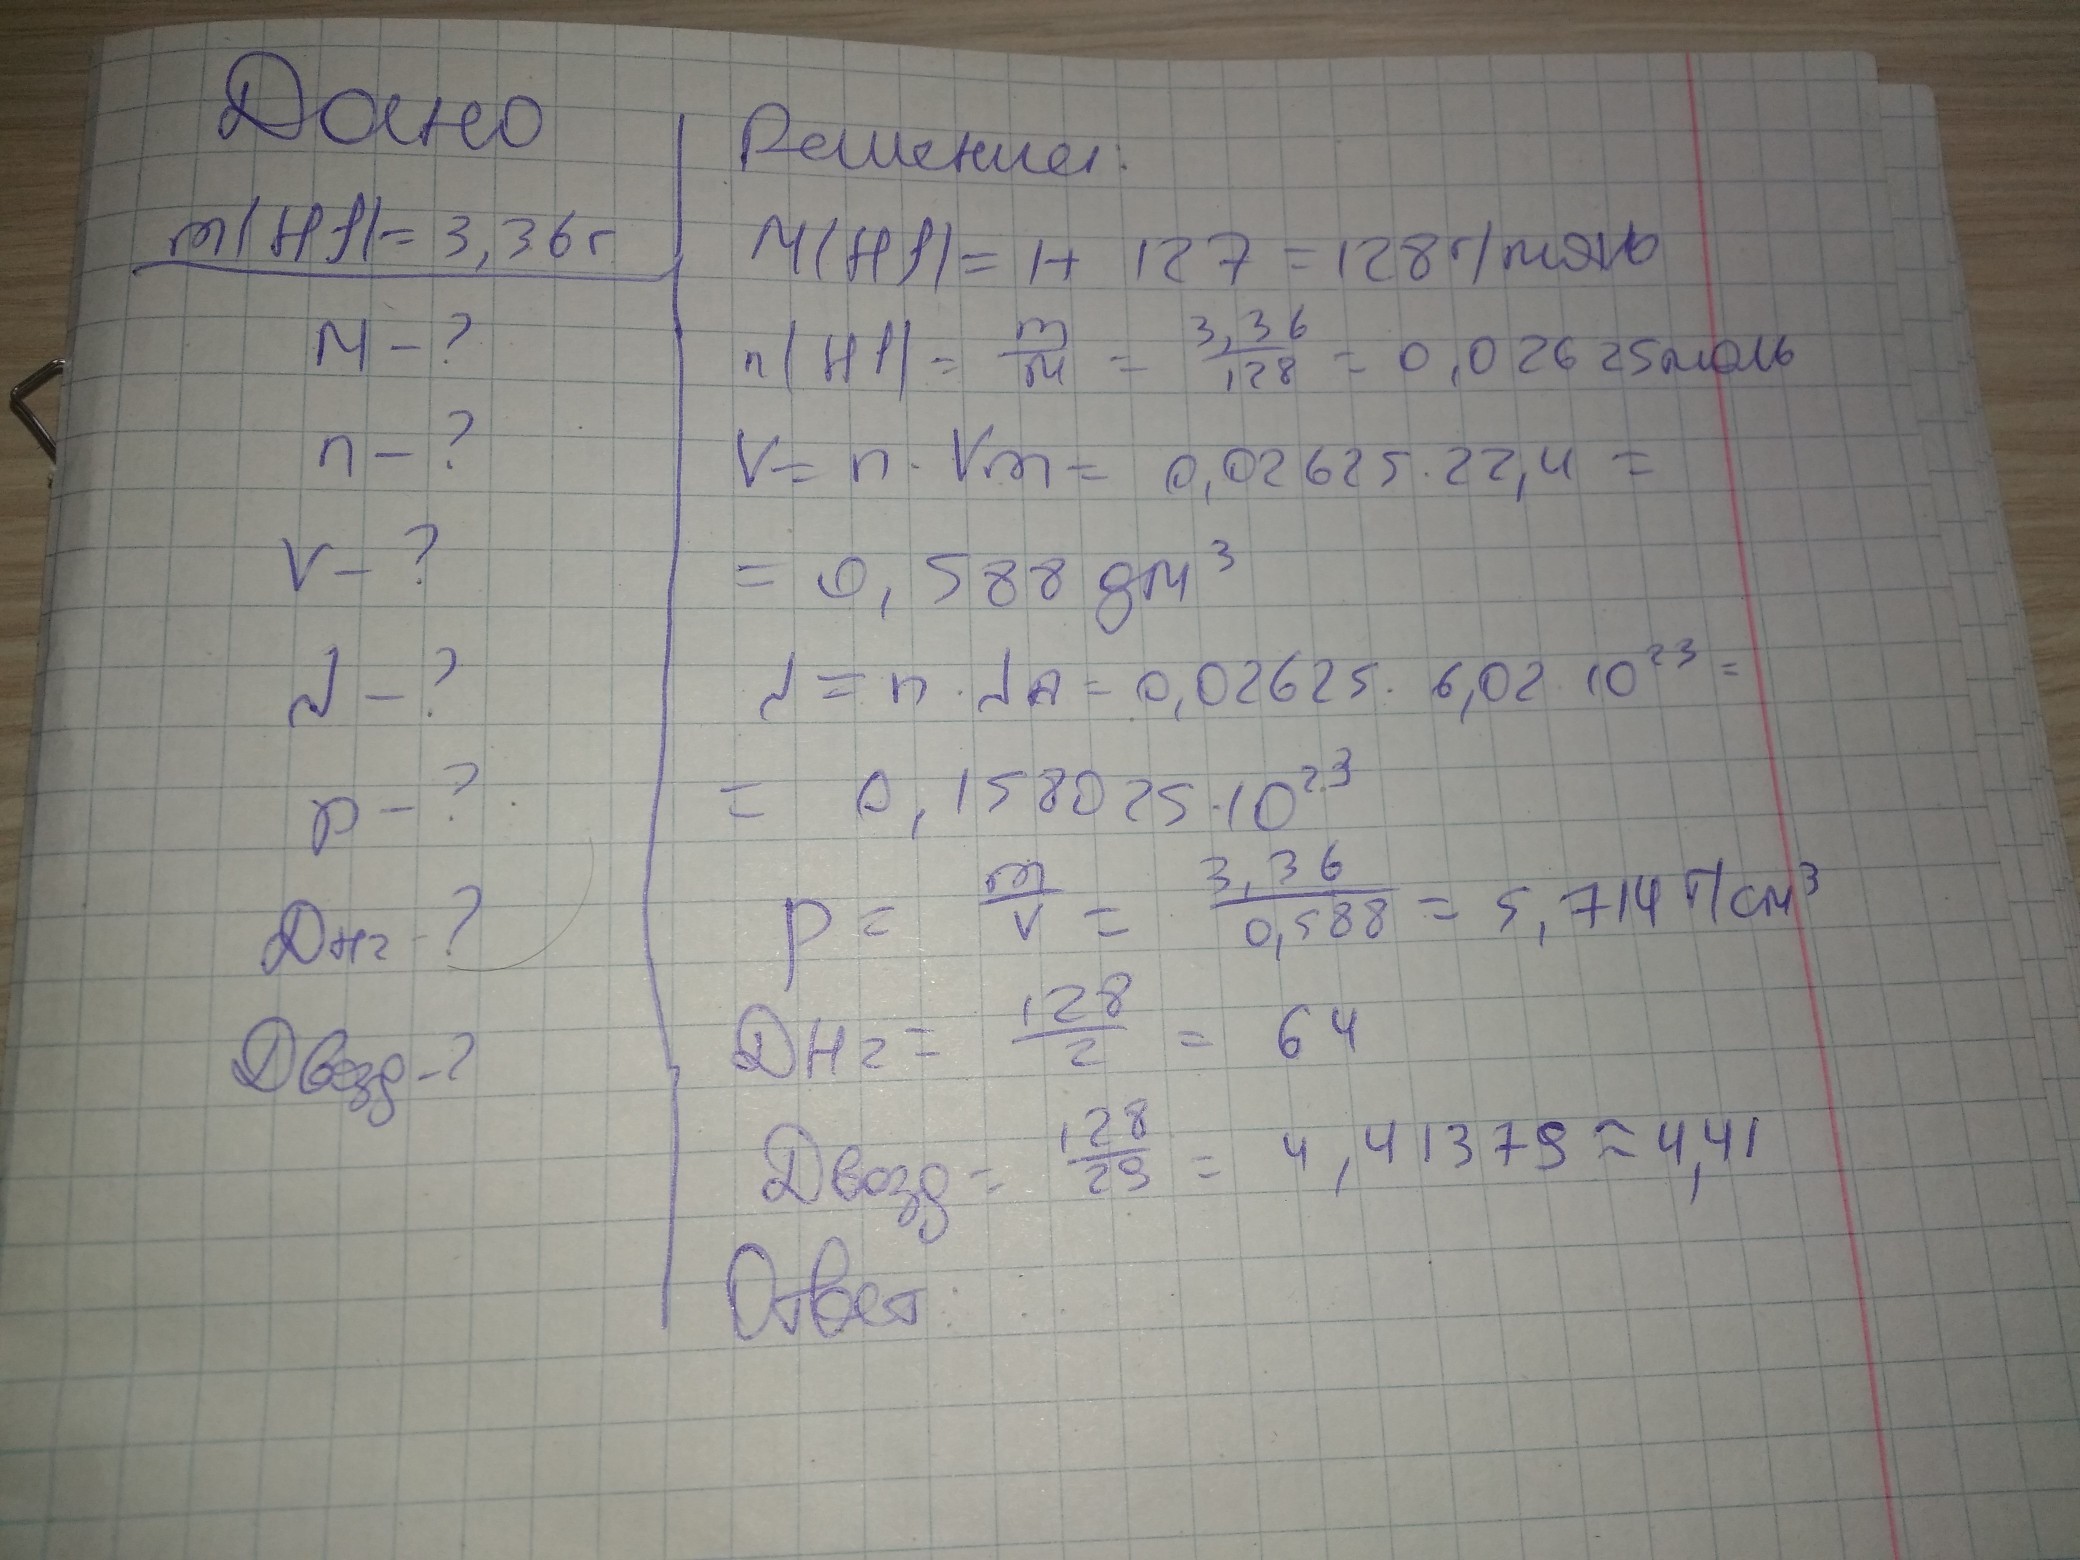 Дано
m(HJ)= 3,36г
M - ?
n - ?
V - ?
N - ?
p - ?
DH2 - ?
Dвозд - ?
Решение:
M(HJ)= 1+ 127 = 128г/моль
n(HJ) = m/M = 3,36/128 = 0,02625моль
V= n · Vm = 0,02625 · 22,4 =
= 0,588 дм³
N = n · NA = 0,02625 · 6,02 · 10²³ =
= 0,158025 · 10²³
p = m/V = 3,36/0,588 = 5,714 г/см³
DH2 = 128/2 = 64
Dвозд = 128/29 = 4,41379 ≈ 4,41
Ответ: